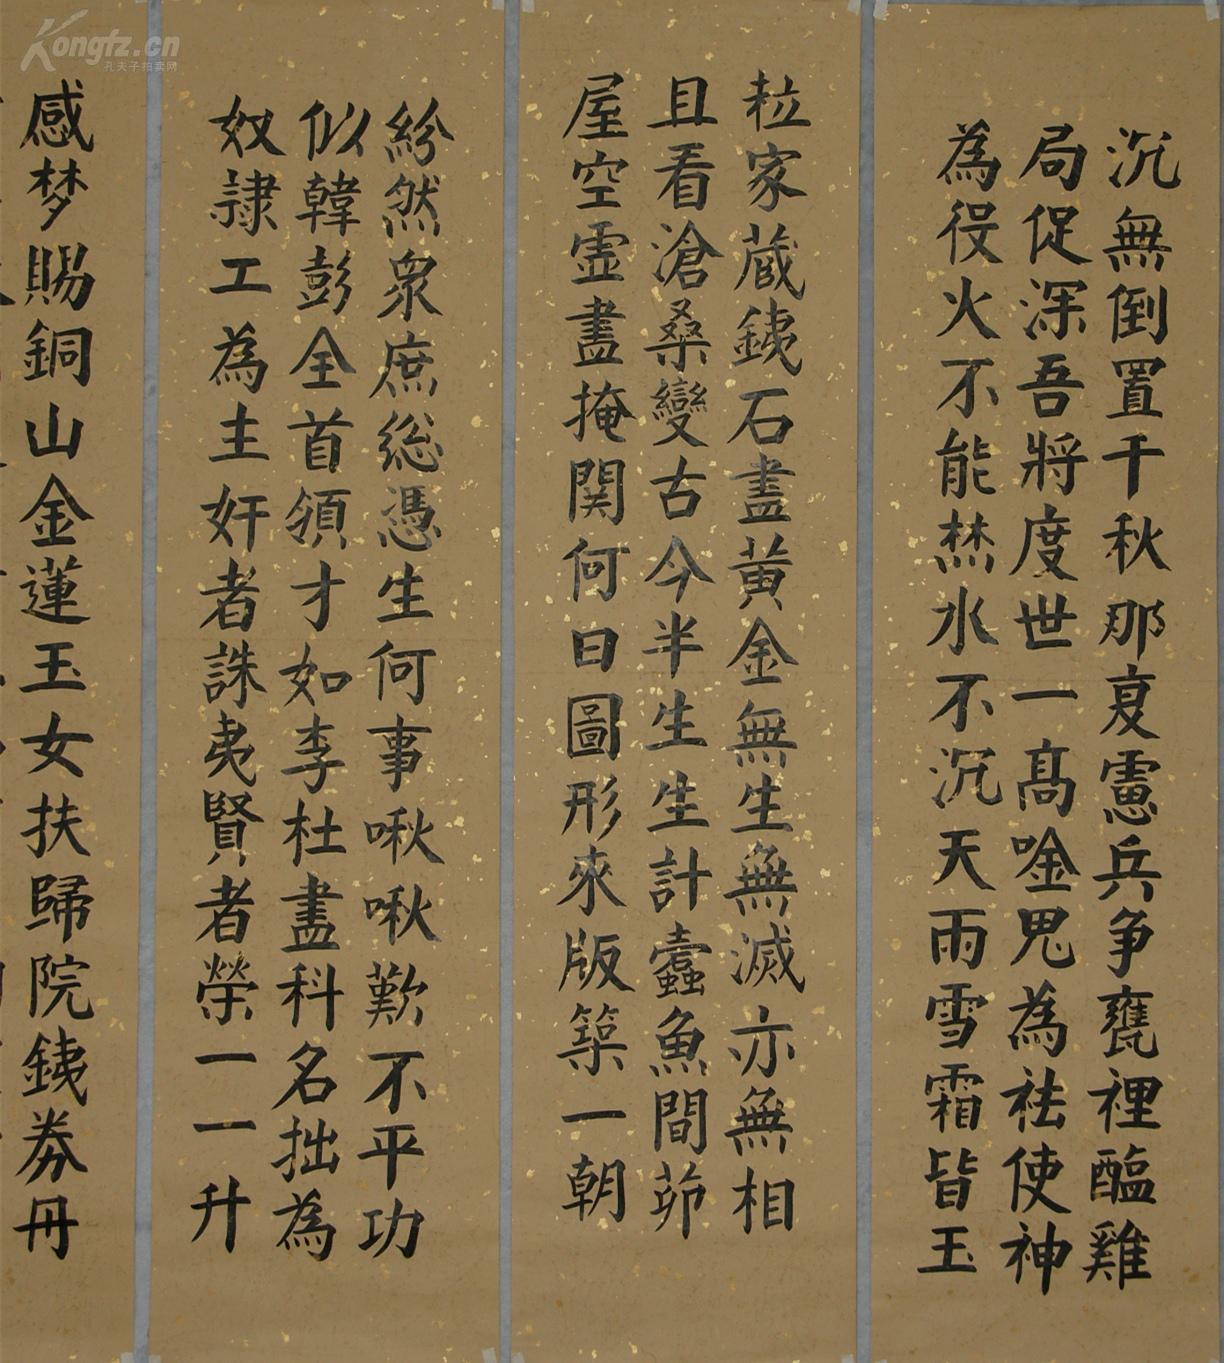 沉無倒置千秋那夏憲兵爭甕裡醢雞
局促深吾將度世一高唫思為袪使神
為役火不能焚水不沉天雨雪霜皆玉
粒家藏銕石盡黃金無生無滅亦無相
且看滄桑變古今半生生計蠹魚間茆
屋空虛盡掩関何日圖形來版築一朝
紛然衆庶総憑生何事啾啾歎不平功
似韓彭全首領才如李杜盡科名拙為
奴隷工為主奸者誅夷賢者榮一一升
感梦賜銅山金蓮玉女扶歸院銕券丹
Kongfz.cn
孔夫子拍卖网